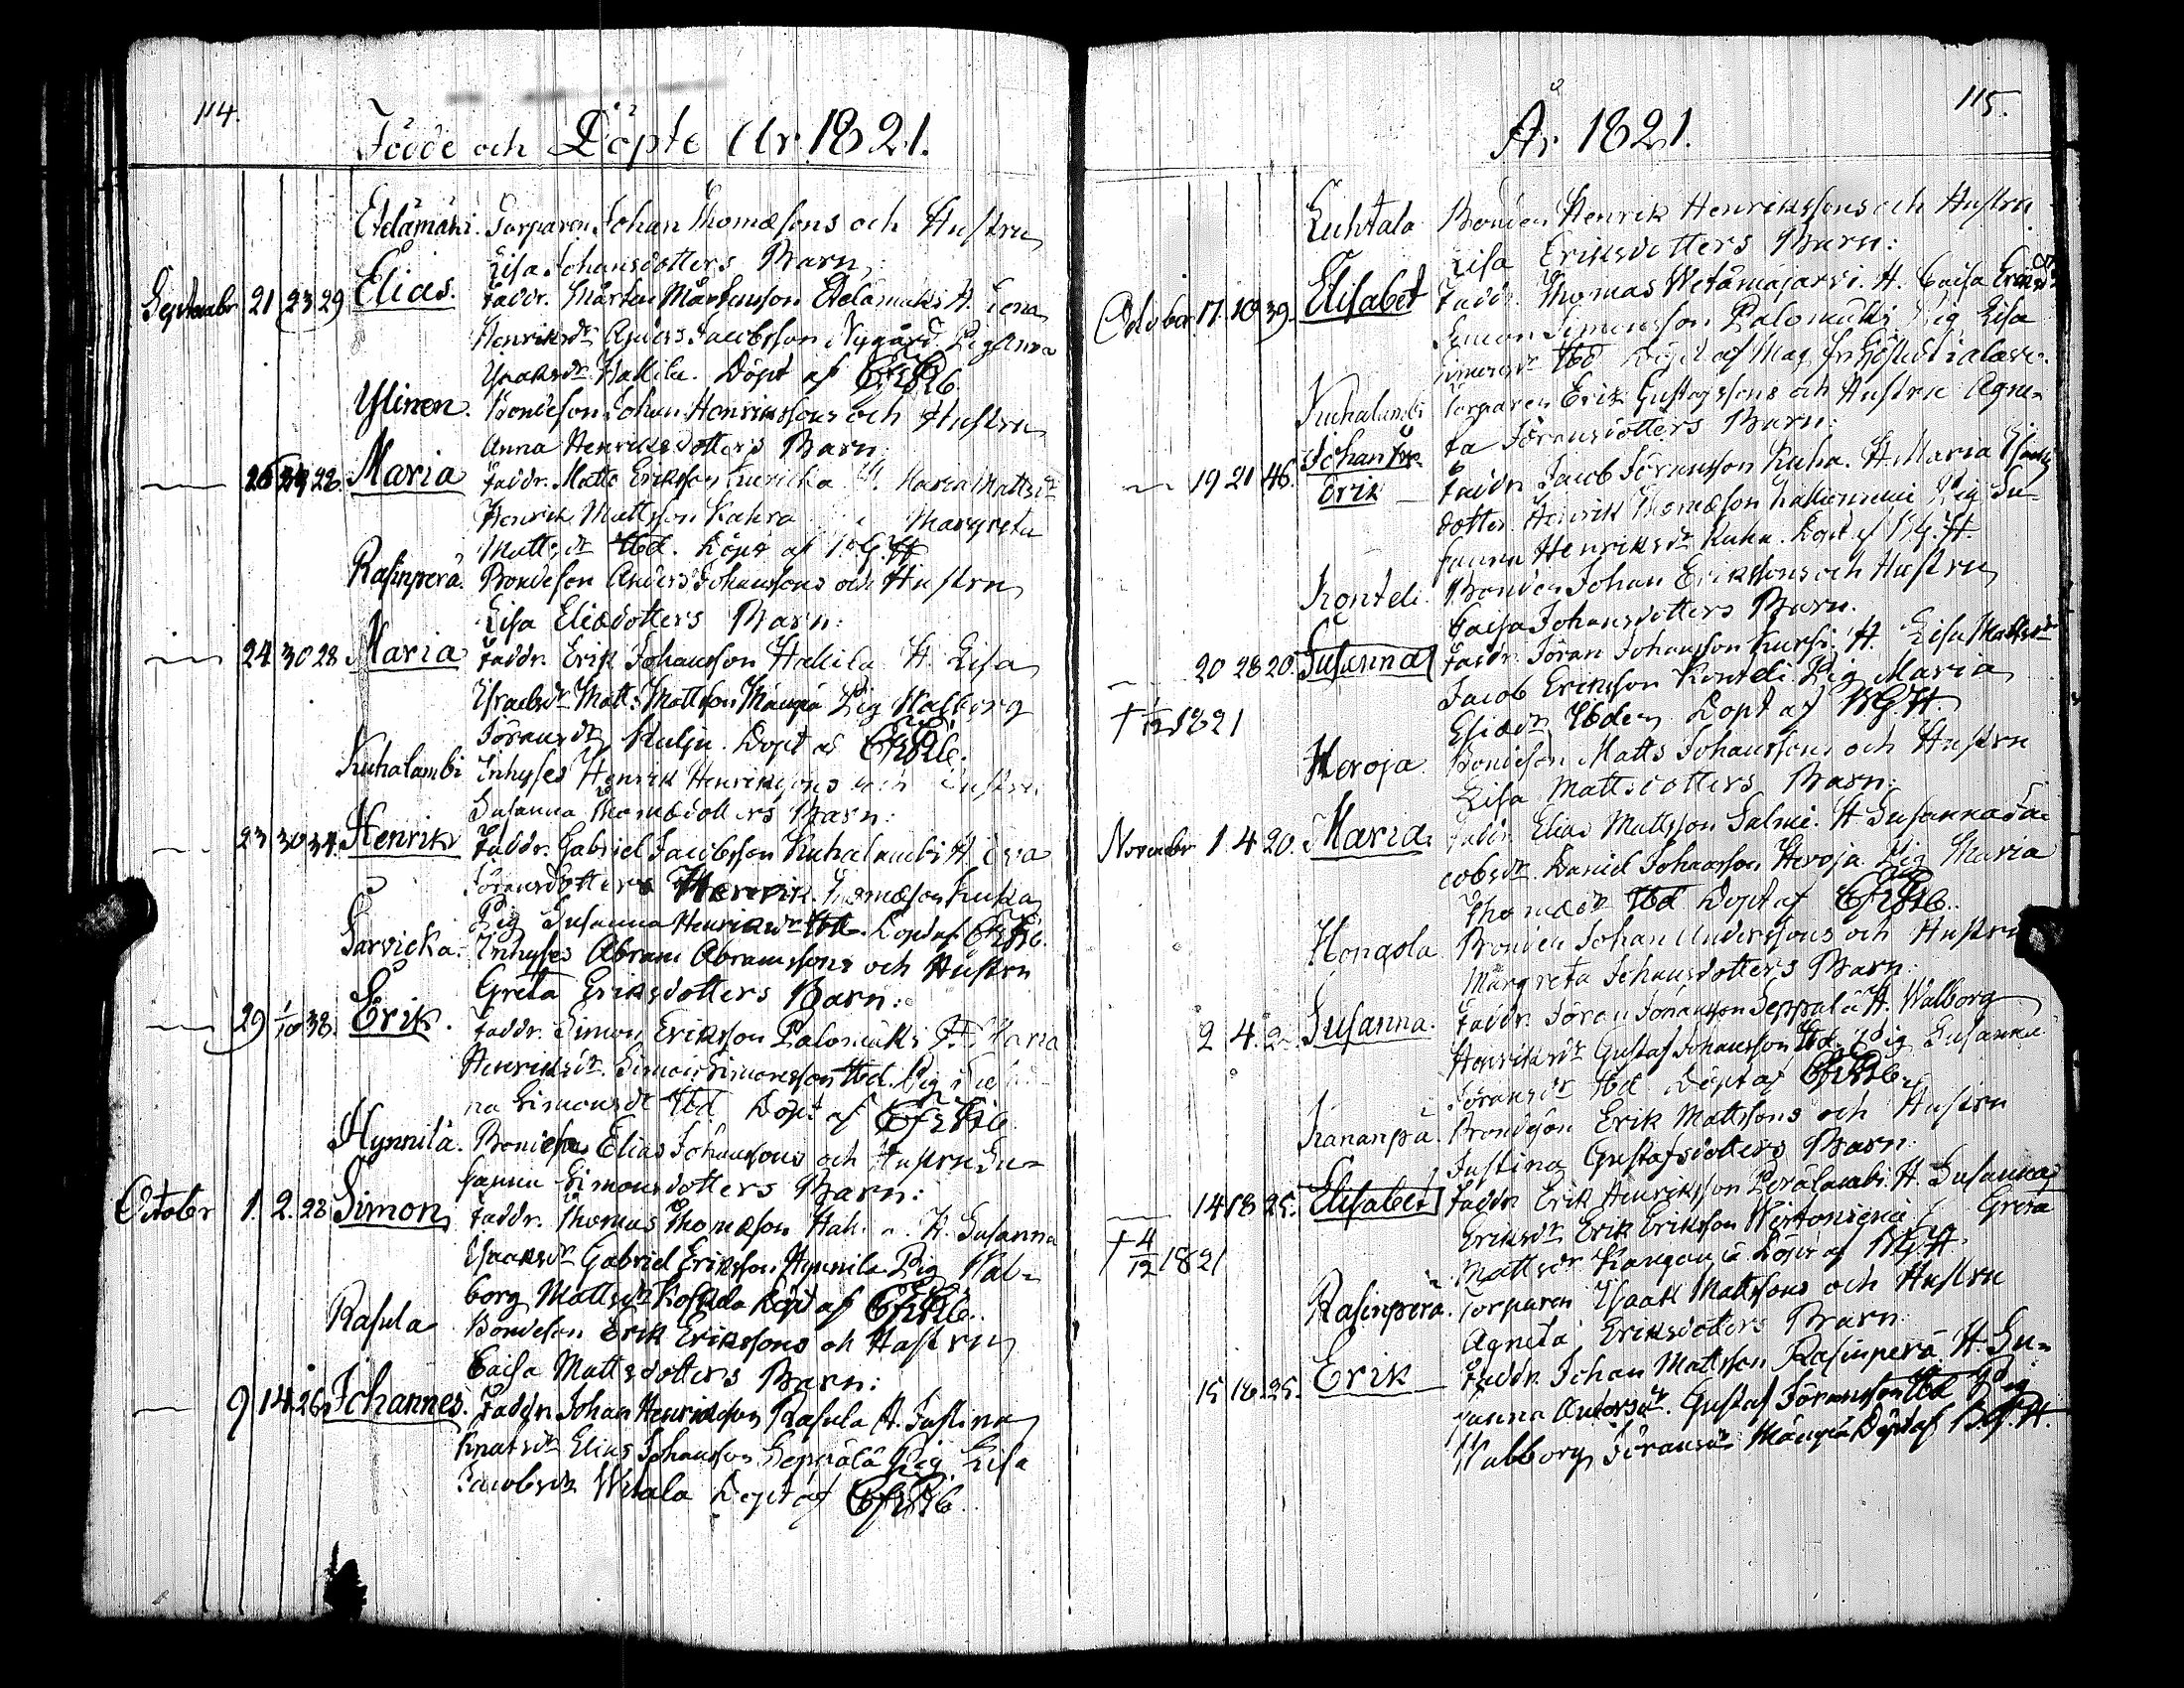 114.
Födde och Döpte År 1821.
Etelämäki. Torparen Johan Thomæsons och Hustru
Lisa Johansdotters Barn:
September 21 23 29 Elias. Faddr. Mårten Mårtensson Etelämäki H. Lena
Henriksdr Anders Jacobsson Nygård Pig Anna
Isaksdr Hallila. Döpt af
Ylinen. Bondeson Johan Henrikssons och Hustru
Anna Henriksdotters Barn
28. Maria Faddr. Matts Eriksson H. Maria Mattsdr
Henrik Mattsson Kahra Margreta
Mattsdr Ibd. Döpt af
Rasinperä. Bondeson Anders Johanssons och Hustru
Lisa Eliædotters Barn:
24 30 28 Maria Faddr. Erik Johansson Hallila H. Lisa
Matts Mattsson Mänpä Pig Walborg
Jöransdr Kulju. Döpt af
Kuhalambi Inhyses Henrik Henrikssons och Hustru
Susanna Thomædotters Barn:
23 30 34. Henrik Faddr. Gabriel Jacobsson Kuhalambi H. Eva
Jöransdotter Henrik Thomæson Kuha
Pig Susanna Henriksdr Ibd. Döpt af
Sarvicka. Inhyses Abram Abramssons och Hustru
Greta Eriksdotters Barn:
29 1/10 38. Erik. Faddr. Simon Eriksson Palomäki H. Maria
Henriksdr. Simon Simonsson Ibd. Pig
na Simonsdr Ibd Döpt af
Hynnilä. Elias Johanssons och Hustru Su-
sanna Simonsdotters Barn:
October 1. 2. 28 Simon Faddr. Thomas Thomæson H. Susanna
Isaaksdr Gabriel Eriksson Hynnilä Pig Wal-
borg Mattsdr Koskela Döpt af
Rasula Bondeson Erik Erikssons och Hustru
Caisa Mattsdotters Barn:
9 14 26 Johannes. Faddr. Johan Henriksson Rasula H. Justina
Knutsdr Elias Johansson Seppälä Pig Lisa
Jacobsdr Wetala Döpt af
115.
År 1821.
Luhtala Bonden Henrik Henrikssons och Hustru
Lisa Eriksdotters Barn:
October 17. 19 39. Elisabet Faddr. Thomas Wetämäjärvi. H. Caisa Eriksdr
Simon Simonsson Palomäki Pig Lisa
Simonsdr Ibd Döpt af Mag.
Kuhalambi Torparen Erik Gustafssons och Hustru Agne-
ta Jöransdotters Barn:
19 21 46. Johan
Erik Faddr. Jacob Jöransson Kuha. H. Maria
dotter. Henrik Thomæson Pig Su-
sanna Henriksdr Kuha. Döpt af B.G.H.
Konteli Bonden Johan Erikssons och Hustru
Caisa Johansdotters Barn.
20 28 20. Susanna Faddr. Jöran Johansson Kurki. H. Lisa Mattsdr
Jacob Eriksson Konteli Pig Maria
† 1/12 1821 Eliædr Ibdem Döpt af B.G.H.
Heroja. Bondeson Matts Johanssons och Hustru
Lisa Mattsdotters Barn:
November 1. 4. 20. Maria. Faddr. Elias Mattsson Salmi. H Susanna Ja-
cobsdr. Daniel Johansson Heroja Pig Maria
Thomædr Ibd Döpt af
Hongola Bonden Johan Anderssons och Hustru
Margreta Johansdotters Barn:
2 4. Susanna. Faddr. Jöran Johansson Seppälä H. Walborg
Henriksdr Gustaf Johansson Ibd. Pig Susanna
Jöransdr Ibd Döpt af
Kananpä. Erik Mattsons och Hustru
Justina Gustafsdotters Barn:
14 18 25. Elisabet Faddr. Erik Henriksson Perälambi. H. Susanna
Eriksdr. Erik Eriksson Greta
† 4/12 1821 Mattsdr Döpt af B.G.H.
Rasinperä. Torparen Isaak Mattsons och Hustru
Agneta Eriksdotters Barn:
15 18. 25. Erik Faddr. Johan Mattsson Rasinperä H. Su-
sanna Andersdr. Gustaf Jöransson Ibd Pig
Walborg Jöransdr Mänpä Döpt af B.G.H.